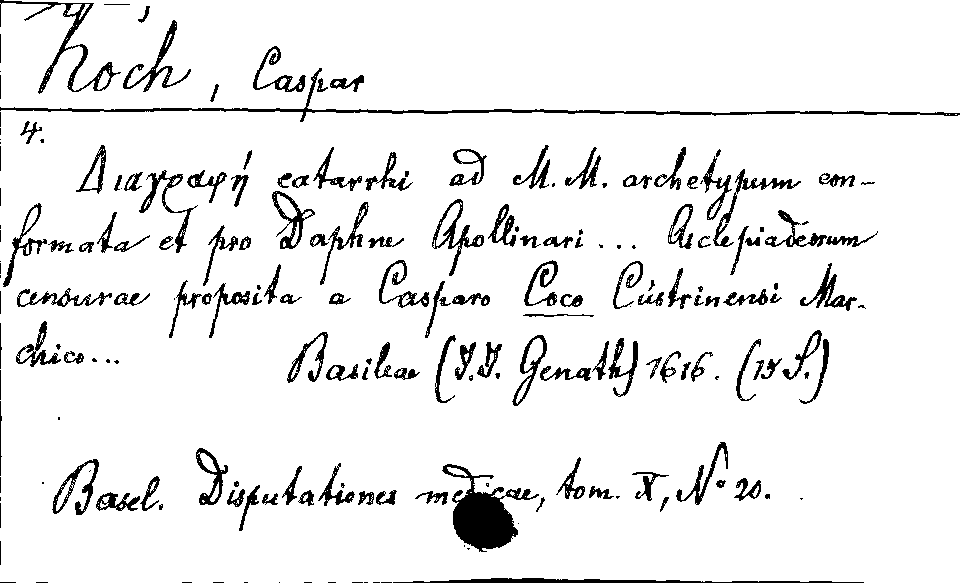 Koch, Caspar
4.
Διαγραφή catarrhi ad M. M. archetypum con-
formata et pro Daphne Apollinari ... Asclepiadeorum
censurae proposita a Casparo Coco Cüstrinensi Mar-
chico...
Basileae (J.J. Genath) 1616. (15 S.)
Basel. Disputationes medicae, tom. X, No 20.